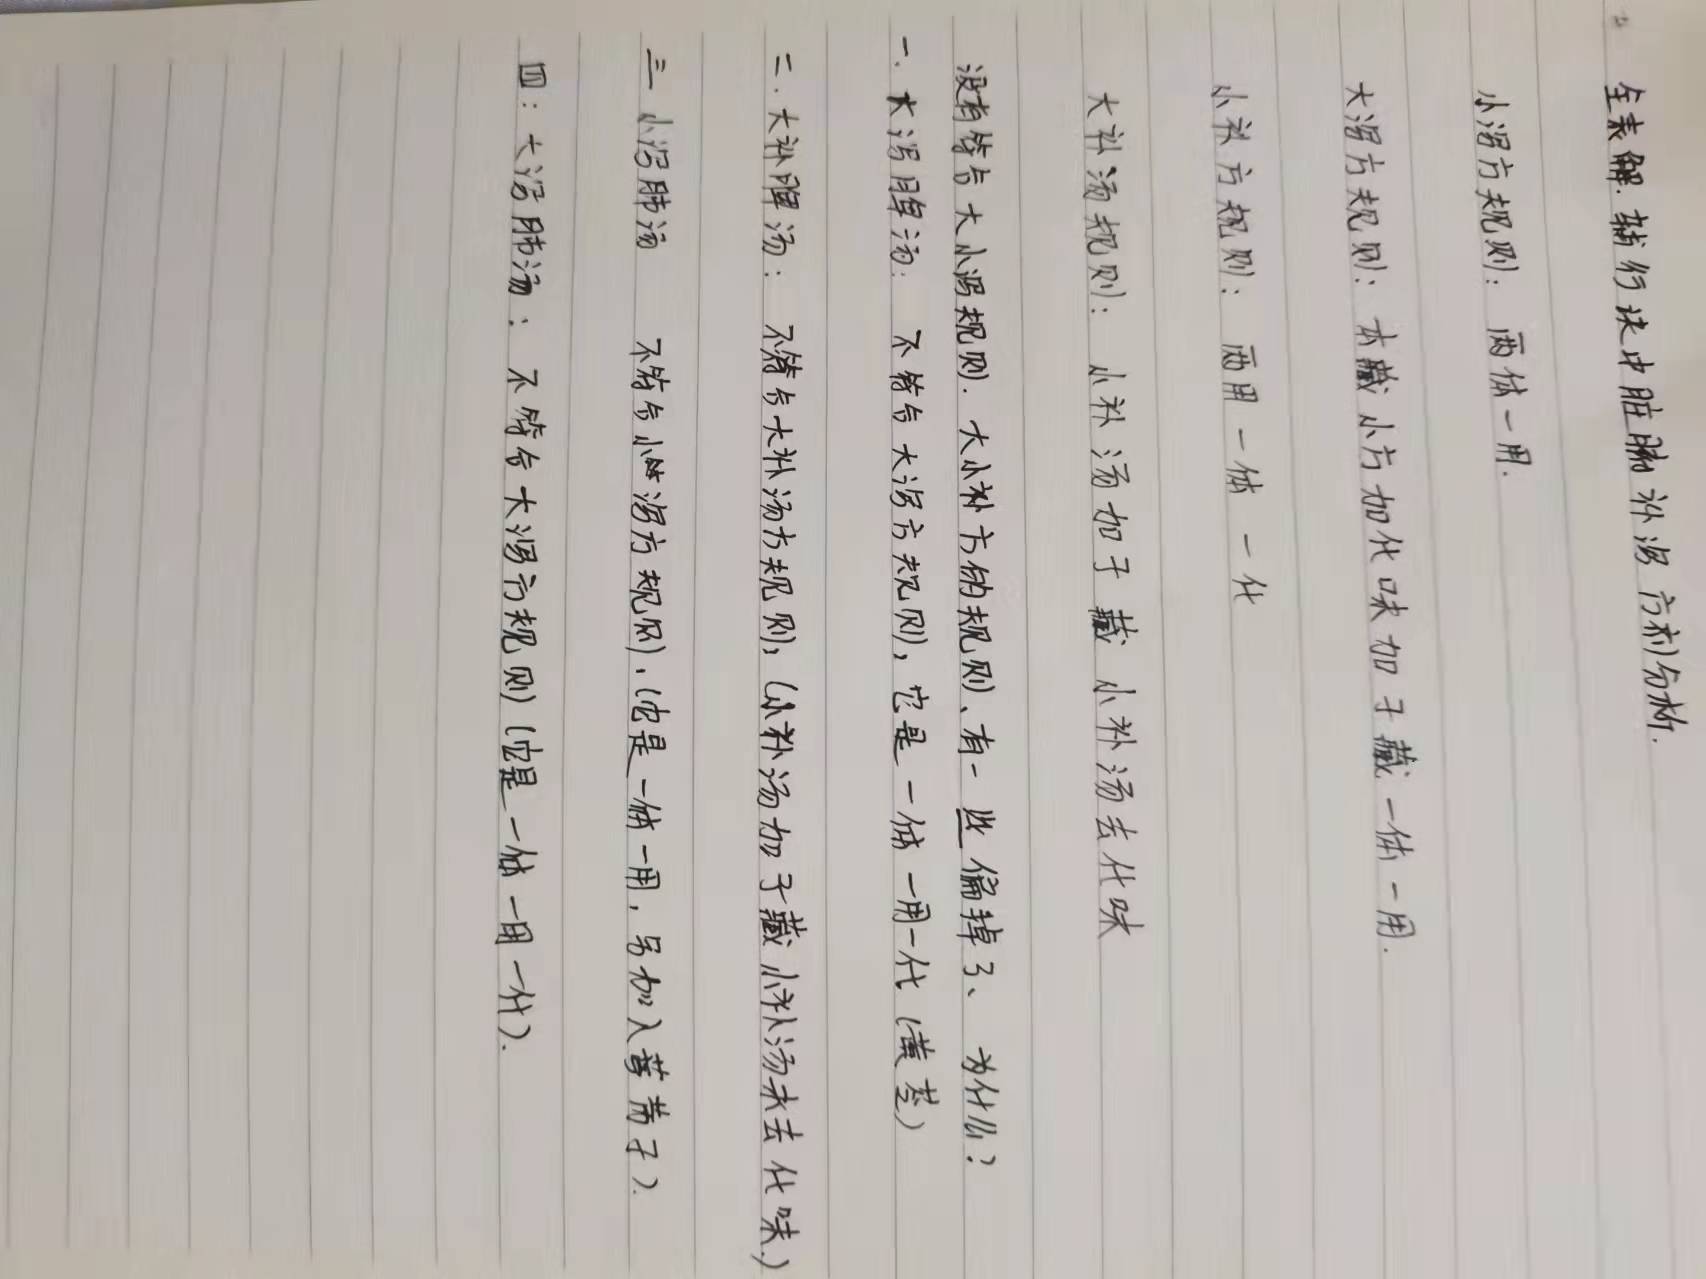 全表解.辅行诀中脏腑补泻方剂分析.
小泻方规则: 两体一用.
大泻方规则: 本藏小方加化味加子藏一体一用.
小补方规则: 两用一体一化
大补汤规则: 小补汤加子藏小补汤去化味
没有符合大小泻规则.大小补方的规则、有一些偏掉了、为什么?
一.大泻脾汤: 不符合大泻方规则, 它是一体一用一化(黄芩)
二.大补脾汤: 不符合大补汤方规则,(小补汤加子藏小补汤未去化味.)
三 小泻肺汤 不符合小泻方规则.(它是一体一用,另加入葶苈子).
四:大泻肺汤: 不符合大泻方规则(它是一体一用一化).